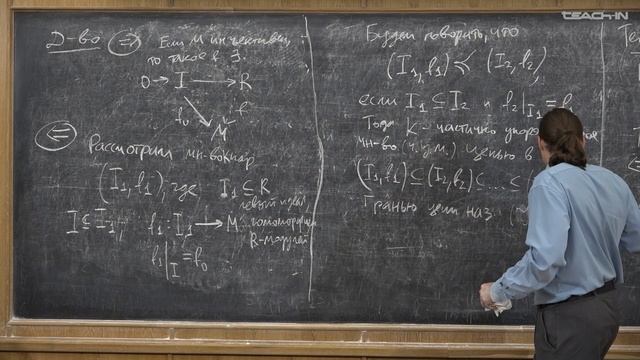 Д-во (⇒) Если M инъективен,
то такое в 3.
0 → I → R
f₀ f
M
(⇐) Рассмотрим мн-во K пар
(I₁, f₁), где I₁ ⊆ R
левый идеал
I ⊆ I₁, f₁: I₁ → M гомоморфизм
R-модулей
f₁|_I = f₀
Будем говорить, что
(I₁, f₁) ≼ (I₂, f₂),
если I₁ ⊆ I₂ и f₂|_I₁ = f
Тогда K - частично упоряд
мн-во (ч.у.м.) Цепью в
(I₁, f₁) ⊆ (I₂, f₂) ⊆ ... ⊆ (
Гранью цепи наз.
TEACH-IN
Те